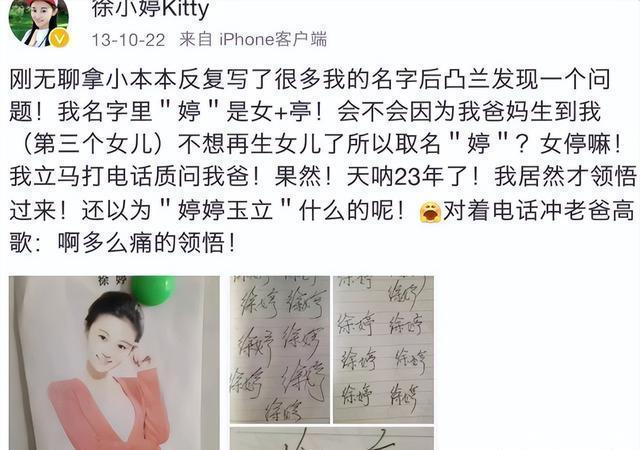 徐小婷Kitty
13-10-22 来自 iPhone客户端
刚无聊拿小本本反复写了很多我的名字后凸兰发现一个问
题！我名字里＂婷＂是女+亭！会不会因为我爸妈生到我
（第三个女儿）不想再生女儿了所以取名＂婷＂？女停嘛！
我立马打电话质问我爸！果然！天呐23年了！我居然才领悟
过来！还以为＂婷婷玉立＂什么的呢！对着电话冲老爸高
歌：啊多么痛的领悟！
徐婷
徐婷 徐婷
徐婷 徐婷
徐婷 徐婷
徐婷
徐婷 徐婷
徐婷 徐婷
徐婷 徐婷
徐婷 徐婷